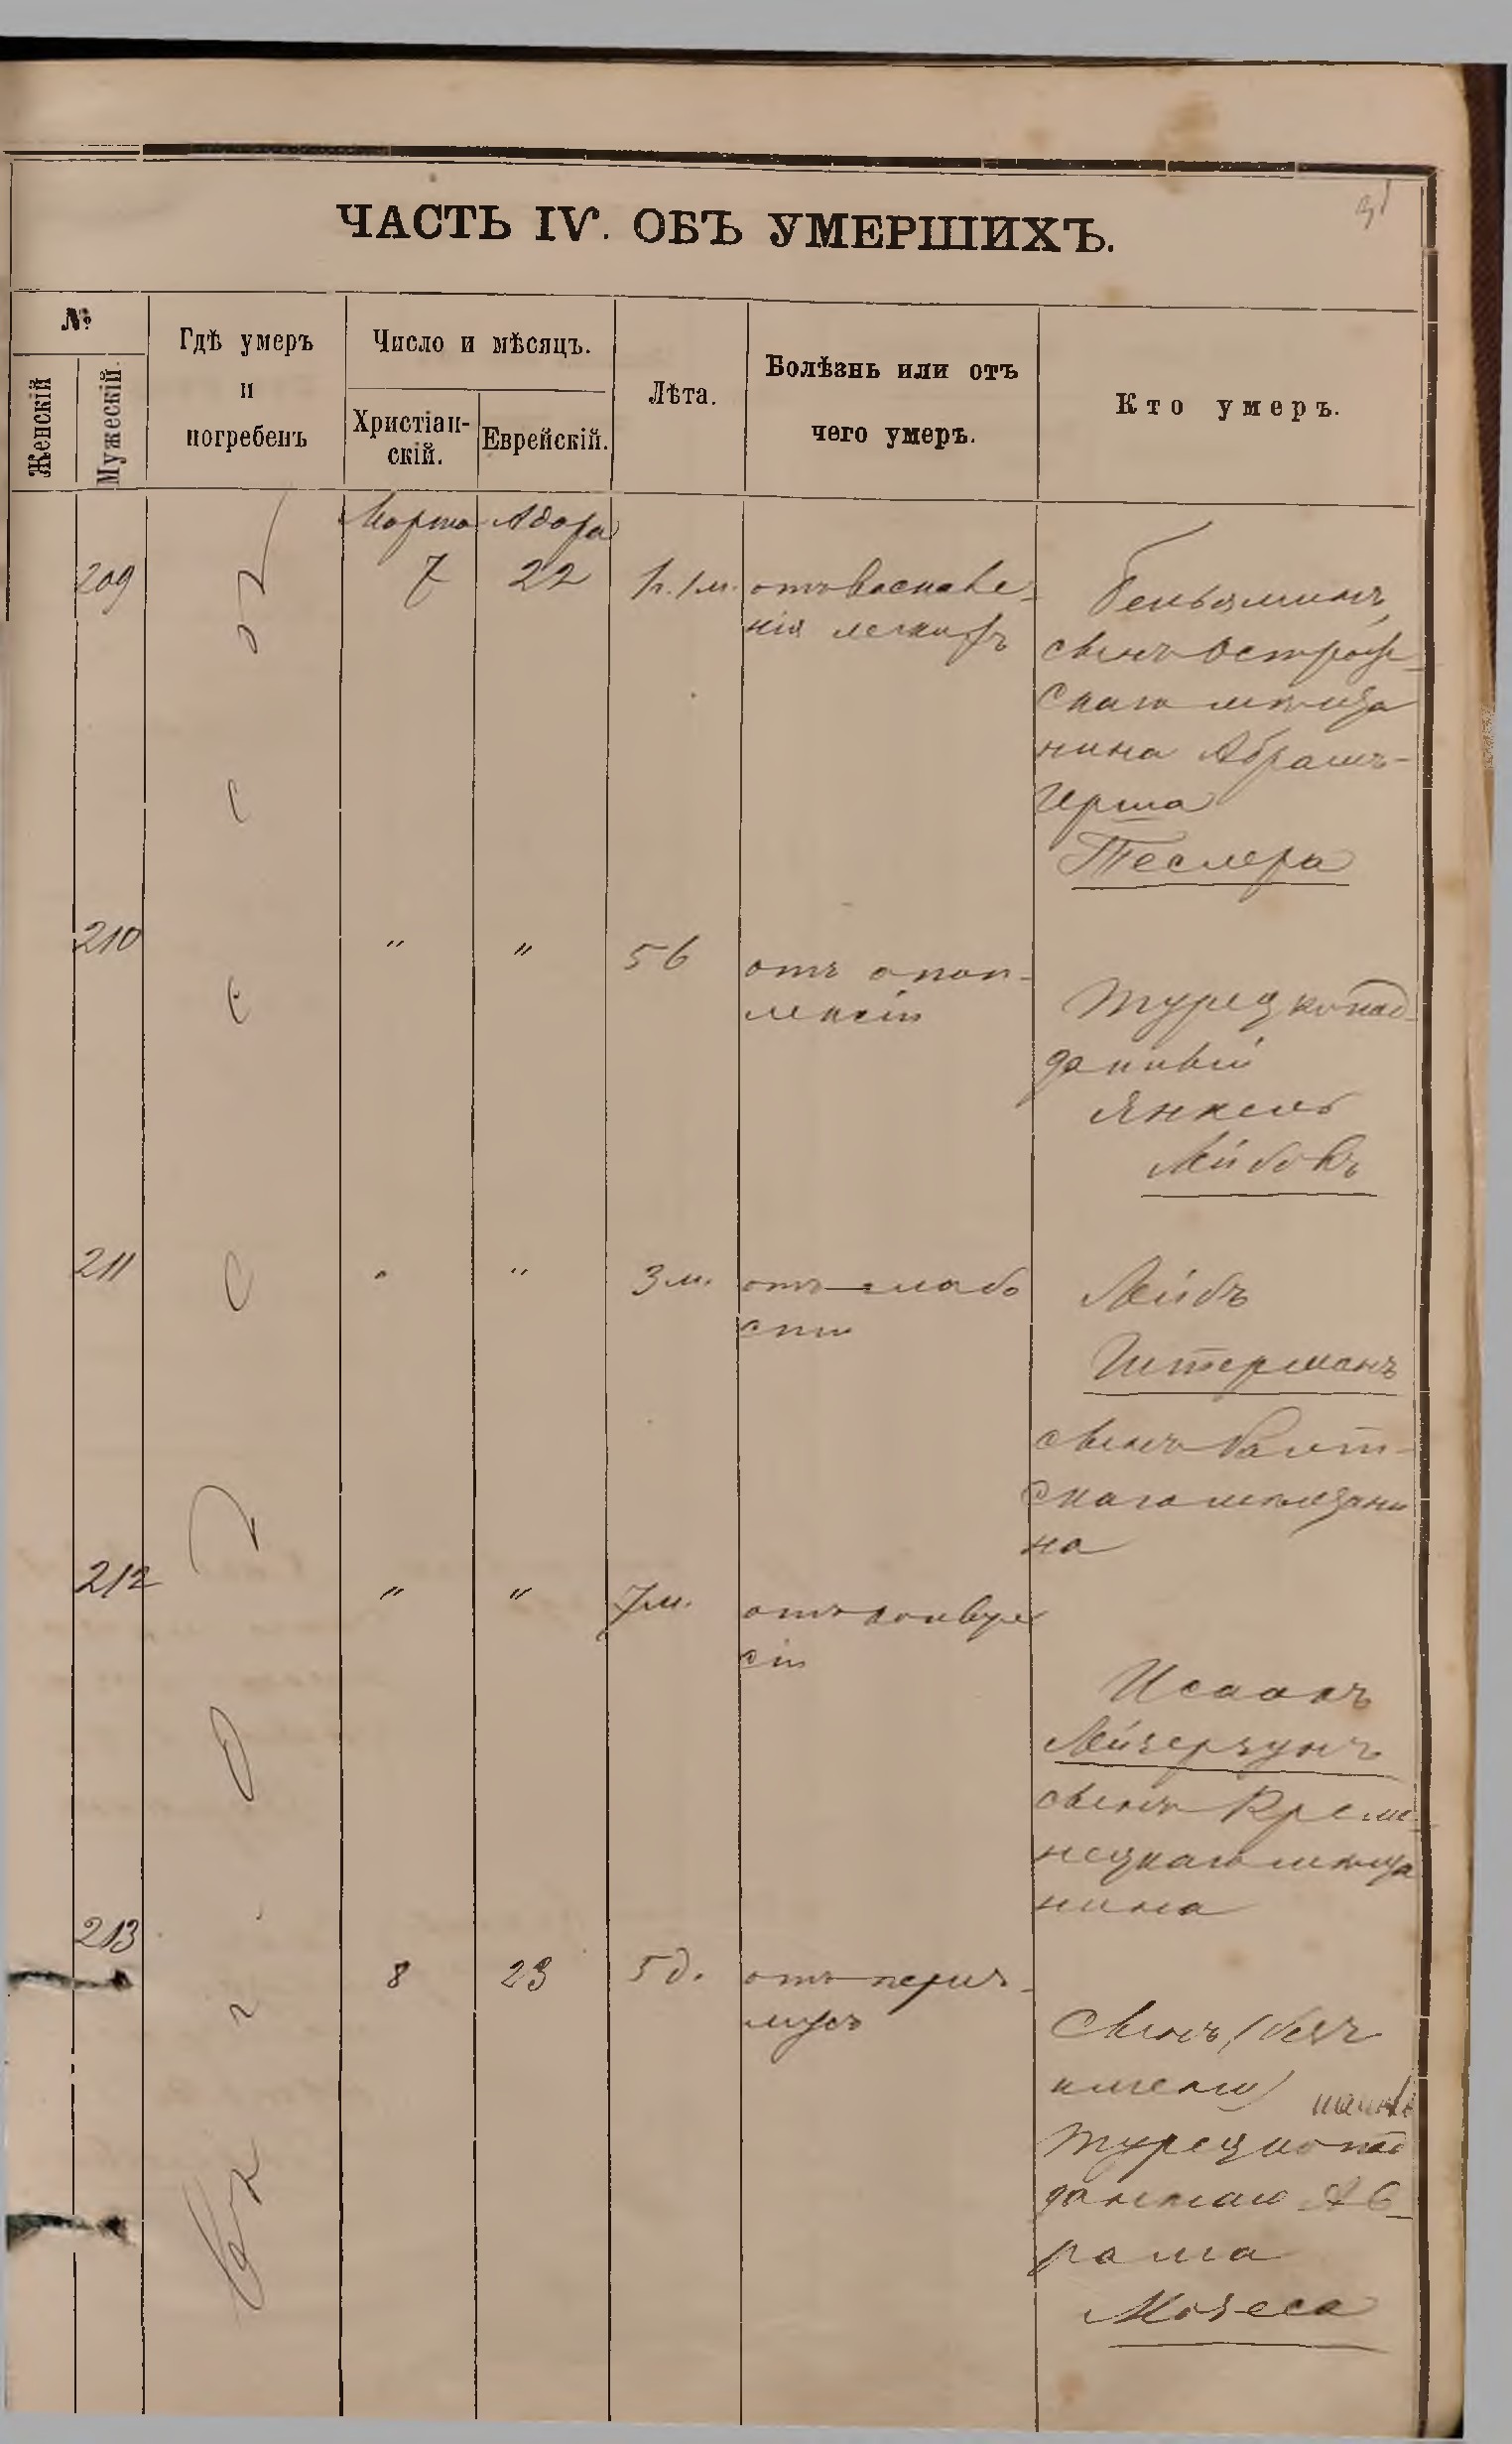 ЧАСТЬ IV. ОБЪ УМЕРШИХЪ.
№
Женскій
Мужескій.
Гдѣ умеръ
и
погребенъ
Число и мѣсяцъ.
Христіан-
скій.
Еврейскій.
Лѣта.
Болѣзнь или отъ
чего умеръ.
Кто умеръ.
Марта Адара
209 7 22 1г. 1м. отъ воспале-
нія легкихъ
Беньяминъ,
сынъ Острож-
скаго мѣща
нина Абрамъ-
Герша
Теслера
210 " " 56 отъ апоп-
лексіи
Турецкопод-
данный
Янкель
Лейбовъ
211 " " 3 м. отъ слабо
сти
Лейбъ
Штерманъ
сынъ Балт-
скаго мѣщани
на
212 " " 7 м. отъ конвуль
сіи
Исаакъ
Лейзерзунъ
сынъ Креме-
нецкаго мѣща
нина
213 8 23 5 д.
Сынъ (безъ
имени)
Турецкопод
даннаго Аб-
рама
Мозеса
Одесса